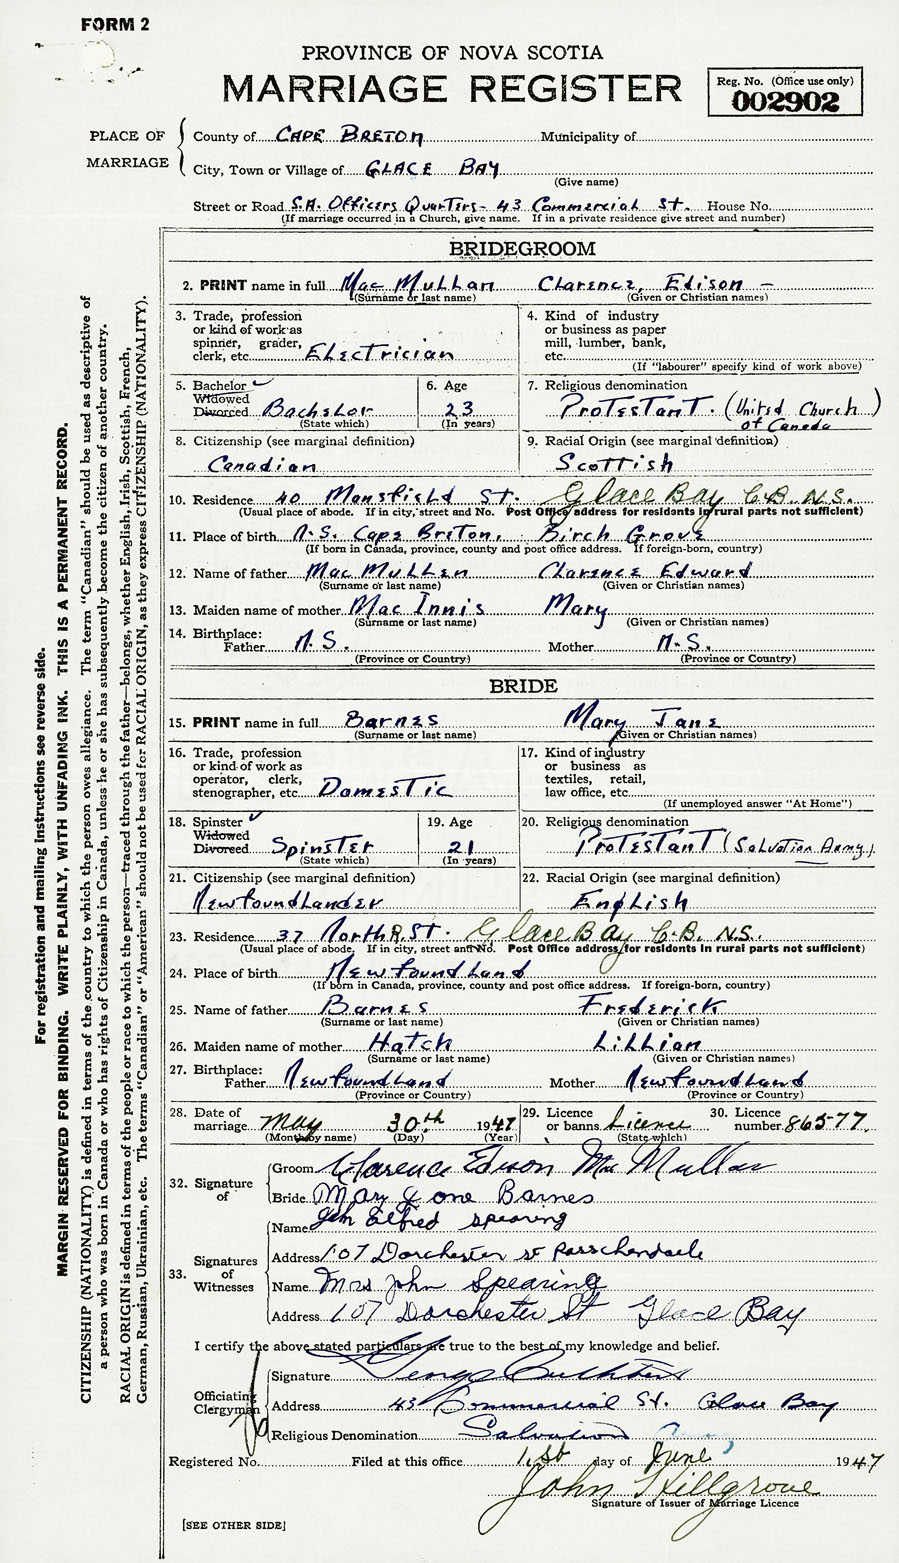 FORM 2
PROVINCE OF NOVA SCOTIA
MARRIAGE REGISTER
Reg. No. (Office use only)
002902
PLACE OF MARRIAGE
County of CAPE BRETON Municipality of
City, Town or Village of GLACE BAY
(Give name)
Street or Road S.A. Officers Quarters - 43 Commercial St. House No.
(If marriage occurred in a Church, give name. If in a private residence give street and number)
BRIDEGROOM
2. PRINT name in full Mac Mullan Clarence, Edison -
(Surname or last name) (Given or Christian names)
3. Trade, profession or kind of work as spinner, grader, clerk, etc. Electrician
4. Kind of industry or business as paper mill, lumber, bank, etc.
(If "labourer" specify kind of work above)
5. Bachelor Widowed Divorced Bachelor
(State which)
6. Age 23
(In years)
7. Religious denomination
Protestant. (United Church of Canada)
8. Citizenship (see marginal definition)
Canadian
9. Racial Origin (see marginal definition)
Scottish
10. Residence 40 Mansfield St. Glace Bay C.B. N.S.
(Usual place of abode. If in city, street and No. Post Office address for residents in rural parts not sufficient)
11. Place of birth N.S. Cape Briton, Birch Grove
(If born in Canada, province, county and post office address. If foreign-born, country)
12. Name of father Mac Mullen Clarence Edward
(Surname or last name) (Given or Christian names)
13. Maiden name of mother Mac Innis Mary
(Surname or last name) (Given or Christian names)
14. Birthplace:
Father N.S. Mother N.S.
(Province or Country) (Province or Country)
BRIDE
15. PRINT name in full Barnes Mary Jane
(Surname or last name) (Given or Christian names)
16. Trade, profession or kind of work as operator, clerk, stenographer, etc. Domestic
17. Kind of industry or business as textiles, retail, law office, etc.
(If unemployed answer "At Home")
18. Spinster Widowed Divorced Spinster
(State which)
19. Age 21
(In years)
20. Religious denomination
Protestant (Salvation Army)
21. Citizenship (see marginal definition)
Newfoundlander
22. Racial Origin (see marginal definition)
English
23. Residence 37 North R. St. Glace Bay C.B. N.S.
(Usual place of abode. If in city, street and No. Post Office address for residents in rural parts not sufficient)
24. Place of birth Newfoundland
(If born in Canada, province, county and post office address. If foreign-born, country)
25. Name of father Barnes Frederick
(Surname or last name) (Given or Christian names)
26. Maiden name of mother Hatch Lillian
(Surname or last name) (Given or Christian names)
27. Birthplace:
Father Newfoundland Mother Newfoundland
(Province or Country) (Province or Country)
28. Date of marriage May 30th 1947
(Month by name) (Day) (Year)
29. Licence or banns Licence
(State which)
30. Licence number 86577
32. Signature of
Groom Clarence Edison Mac Mullan
Bride Mary Jane Barnes
33. Signatures of Witnesses
Name John Alfred Spearing
Address 107 Dorchester st Passchendaele
Name Mrs John Spearing
Address 107 Dorchester St Glace Bay
I certify the above stated particulars are true to the best of my knowledge and belief.
Officiating Clergyman
Signature
Address 43 Commercial St. Glace Bay
Religious Denomination Salvation Army
Registered No. Filed at this office 1st day of June 1947
John Hillgrove
Signature of Issuer of Marriage Licence
[SEE OTHER SIDE]
For registration and mailing instructions see reverse side.
MARGIN RESERVED FOR BINDING. WRITE PLAINLY, WITH UNFADING INK. THIS IS A PERMANENT RECORD.
CITIZENSHIP (NATIONALITY) is defined in terms of the country to which the person owes allegiance. The term "Canadian" should be used as descriptive of
a person who was born in Canada or who has rights of Citizenship in Canada, unless he or she has subsequently become the citizen of another country.
RACIAL ORIGIN is defined in terms of the people or race to which the person—traced through the father—belongs, whether English, Irish, Scottish, French,
German, Russian, Ukrainian, etc. The terms "Canadian" or "American" should not be used for RACIAL ORIGIN, as they express CITIZENSHIP (NATIONALITY).